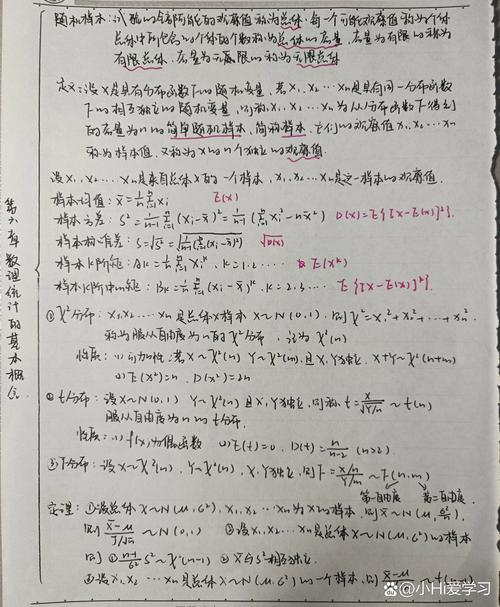 第六章 数理统计的基本概念
随机样本：试验的全部可能的观察值称为总体，每一个可能观察值称为个体
总体中所包含的个体的个数称为总体的容量，容量为有限的称为
有限总体，容量为无限的称为无限总体
定义：设X是具有分布函数F的随机变量，若X₁,X₂…Xn是具有同一分布函数
F的相互独立的随机变量，则称X₁,X₂…Xn为从分布函数F得到
的容量为n的简单随机样本，简称样本，它们的观察值x₁,x₂…xn
称为样本值，又称为X的n个独立的观察值.
设X₁,X₂…Xn是来自总体X的一个样本，x₁,x₂…xn是这一样本的观察值.
样本均值：x̄=1/n Σᵢ₌₁ⁿ xᵢ E(X)
样本方差：S²=1/(n-1) Σᵢ₌₁ⁿ (xᵢ-x̄)²=1/(n-1)(Σᵢ₌₁ⁿ xᵢ²-nx̄²) D(X)=E{[X-E(X)]²}.
样本标准差：S=√S²=√(1/(n-1) Σᵢ₌₁ⁿ (xᵢ-x̄)²) √D(X)
样本k阶矩：Ak=1/n Σᵢ₌₁ⁿ xᵢᵏ, k=1.2… E(Xᵏ)
样本k阶中心矩：Bk=1/n Σᵢ₌₁ⁿ (xᵢ-x̄)ᵏ, k=2.3… E{[X-E(X)]ᵏ}.
①χ²分布：X₁,X₂…Xn是总体X样本 X~N(0,1), 则χ²=X₁²+X₂²+…+Xn²
称为服从自由度为n的χ²分布，记为χ²(n)
性质：(1)可加性：若X~χ²(n) Y~χ²(m), 且X,Y独立, X+Y~χ²(n+m)
(2)E(χ²)=n, D(χ²)=2n
②t分布：设X~N(0,1) Y~χ²(n) 且X,Y独立, 则称t=X/√(Y/n) ~t(n)
服从自由度为n的t分布.
性质：(1) f(x)为偶函数 (2)E(t)=0, D(t)=n/(n-2) (n>2)
③F分布：设X~χ²(n), Y~χ²(m), X,Y独立, 则F=(X/n)/(Y/m) ~F(n,m)
第一自由度 第二自由度
定理：①设总体X~N(μ,σ²), X₁,X₂…Xn为X的样本, 则X̄~N(μ,σ²/n)
则(X̄-μ)/(σ/√n) ~N(0,1) ②设X₁,X₂…Xn是总体X~N(μ,σ²)的样本
则① (n-1)/σ² S²~χ²(n-1) ②X̄与S²相互独立.
③设X₁,X₂…Xn是总体X~N(μ,σ²)的一个样本, 则
@小Hi爱学习